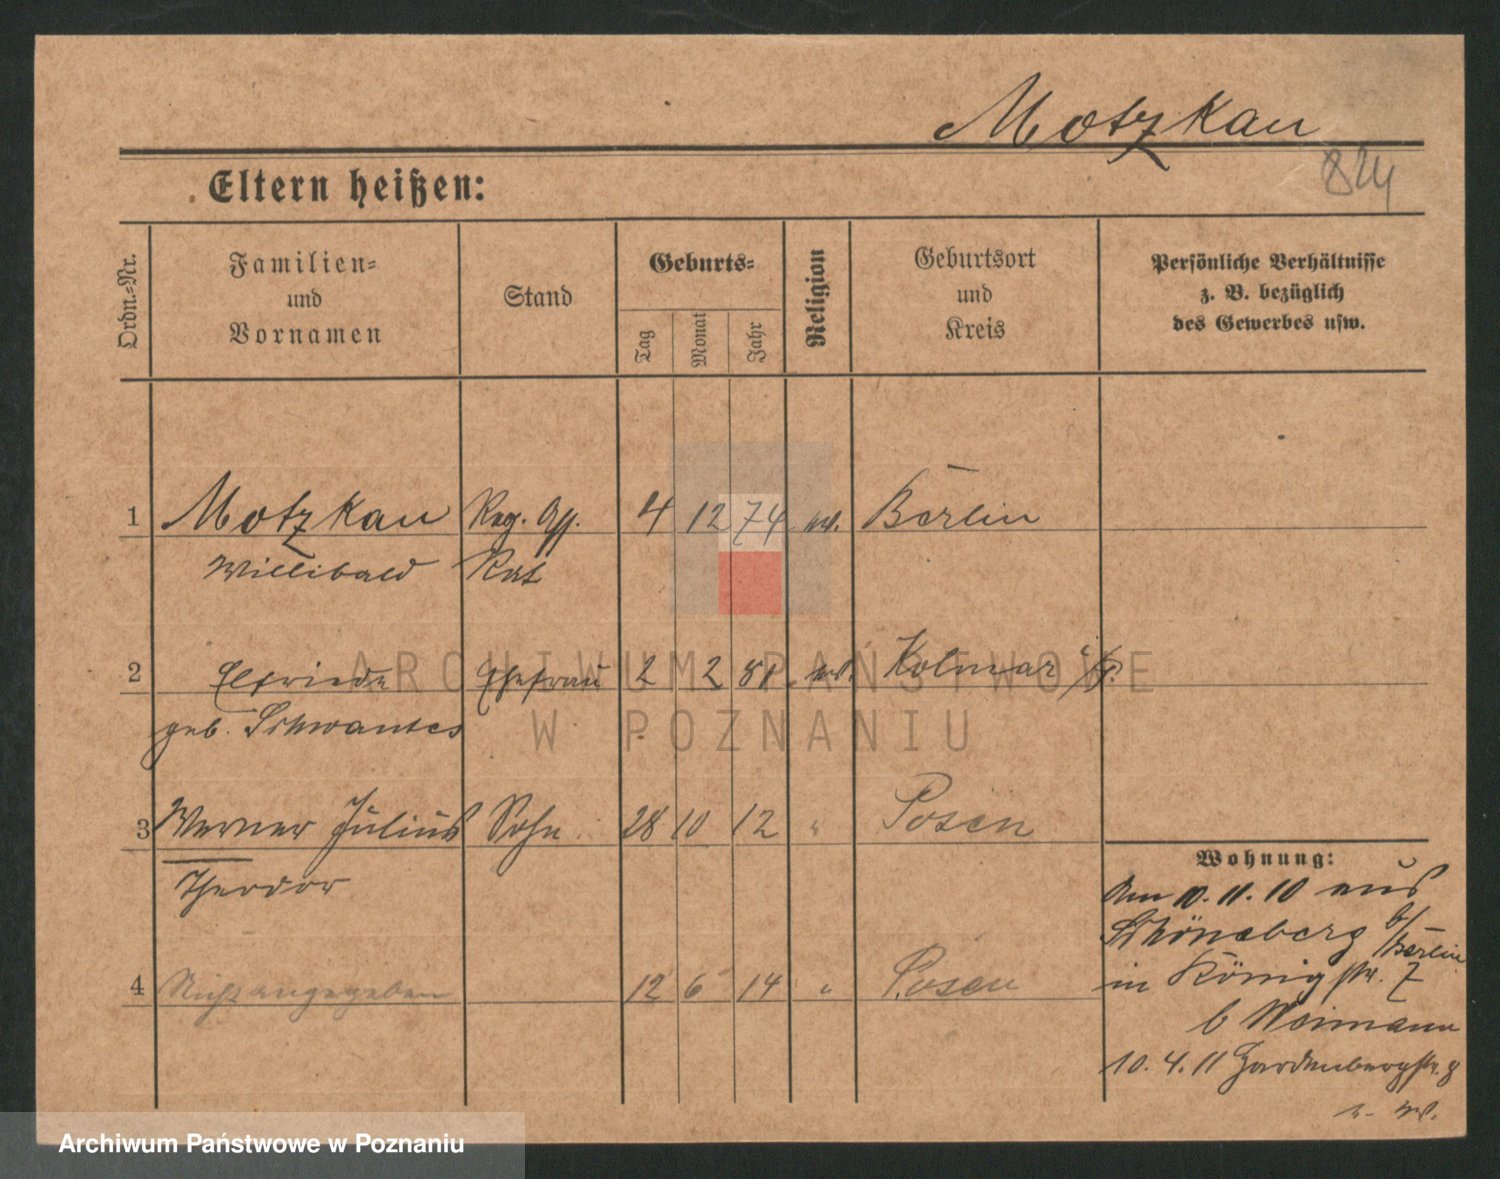 Motzkau
824
Eltern heißen:
Ordn.-Nr.
Familien-
und
Vornamen
Stand
Geburts-
Tag
Monat
Jahr
Religion
Geburtsort
und
Kreis
Persönliche Verhältnisse
z. B. bezüglich
des Gewerbes usw.
1 Motzkau Reg. Ass. 4 12 74 ev. Berlin
Willibald Rat
2 Elfriede Ehefrau 2 2 81 ev. Kolmar i/P.
geb. Schwantes
3 Werner Julius Sohn 28 10 12 " Posen
Theodor
4 Nicht angegeben 12 6 14 " Posen
Wohnung:
Am 10. 11. 10 aus
Schöneberg b/Berlin
in Königstr. 7
b Weimann
10. 4. 11 Hardenbergstr. 8
ARCHIWUM PAŃSTWOWE
W POZNANIU
Archiwum Państwowe w Poznaniu